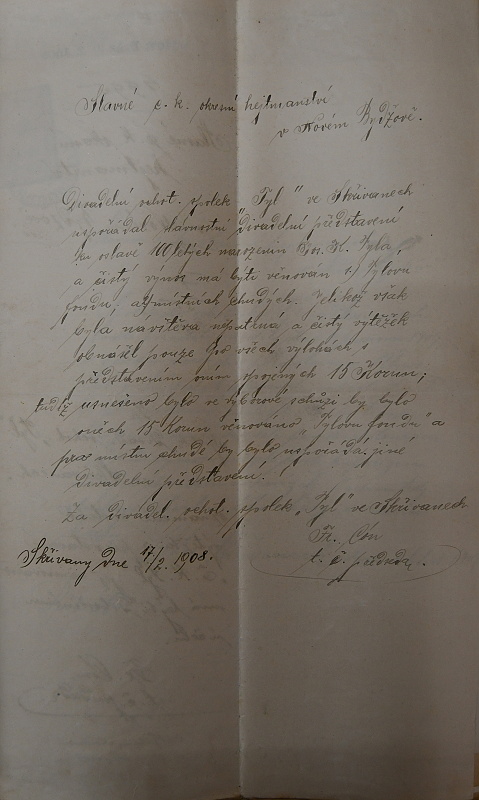 Slavné c. k. okresní hejtmanství
v Novém Bydžově.
Divadelní ochot. spolek „Tyl" ve Skřivanech
uspořádal slavnostní divadelní představení
ku oslavě 100letých narozenin Jos. K. Tyla,
a čistý výnos má býti věnován Tylovu
fondu, a místních chudých. Jelikož však
byla navštěva nepatrná a čistý výtěžek
obnášel pouze po všech výlohách s
představením oním spojených 15 Korun;
tudíž usnešeno bylo ve výborové schůzi by bylo
oněch 15 Korun věnováno „Tylovu fondu" a
pro místní chudé by bylo uspořádá jiné
divadelní představení.
Za divadel. ochot. spolek „Tyl" ve Skřivanech
Fr. Cón
t. č. předseda.
Skřivany dne 17/2. 1908.